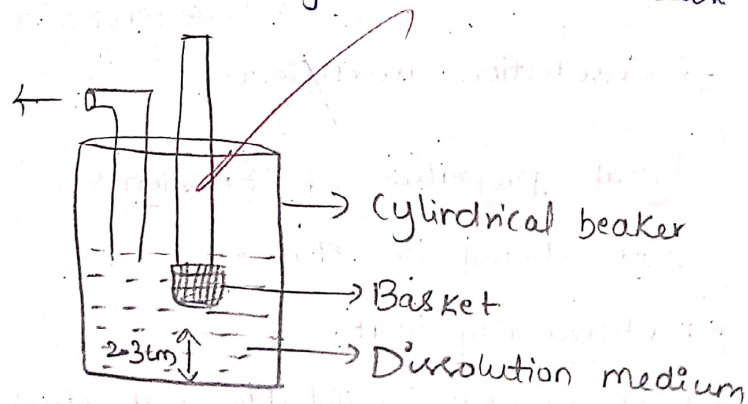 Cylindrical beaker
Basket
2-3cm
Dissolution medium